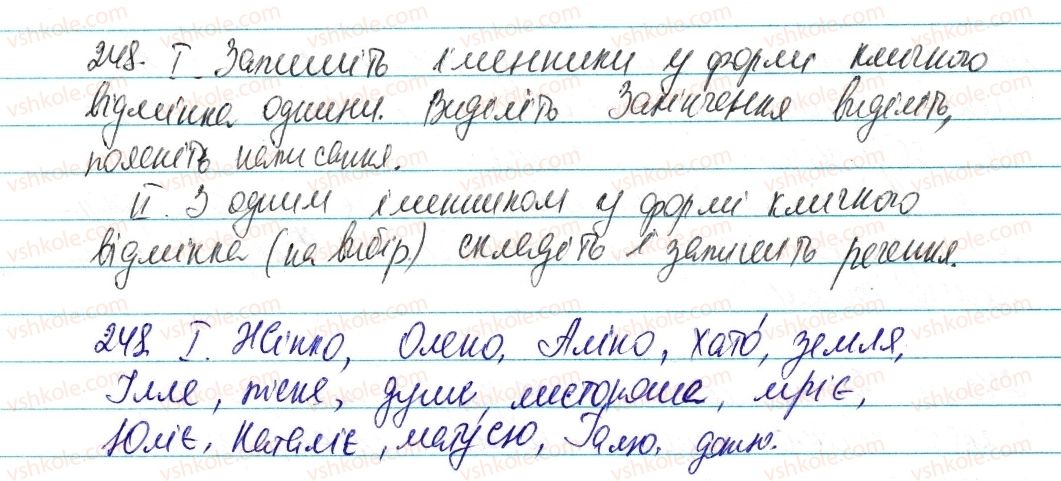 248. І. Запишіть іменники у формі кличного
відмінка однини. Виділіть Закінчення виділіть,
поясніть написання.
ІІ. З одним іменником у формі кличного
відмінка (на вибір) складіть і запишіть речення.
248. І. Жінко, Олено, Аліно, хато, земля,
Ілле, пісне, душе, листоноше, мріє,
Юліє, Наталіє, матусю, Галю, доню.